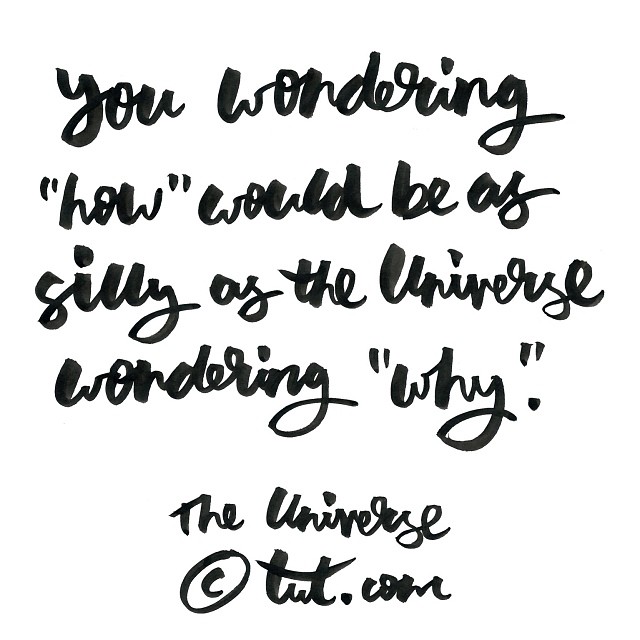 you wondering
"how" would be as
silly as the Universe
wondering "why".
The Universe
© tut.com